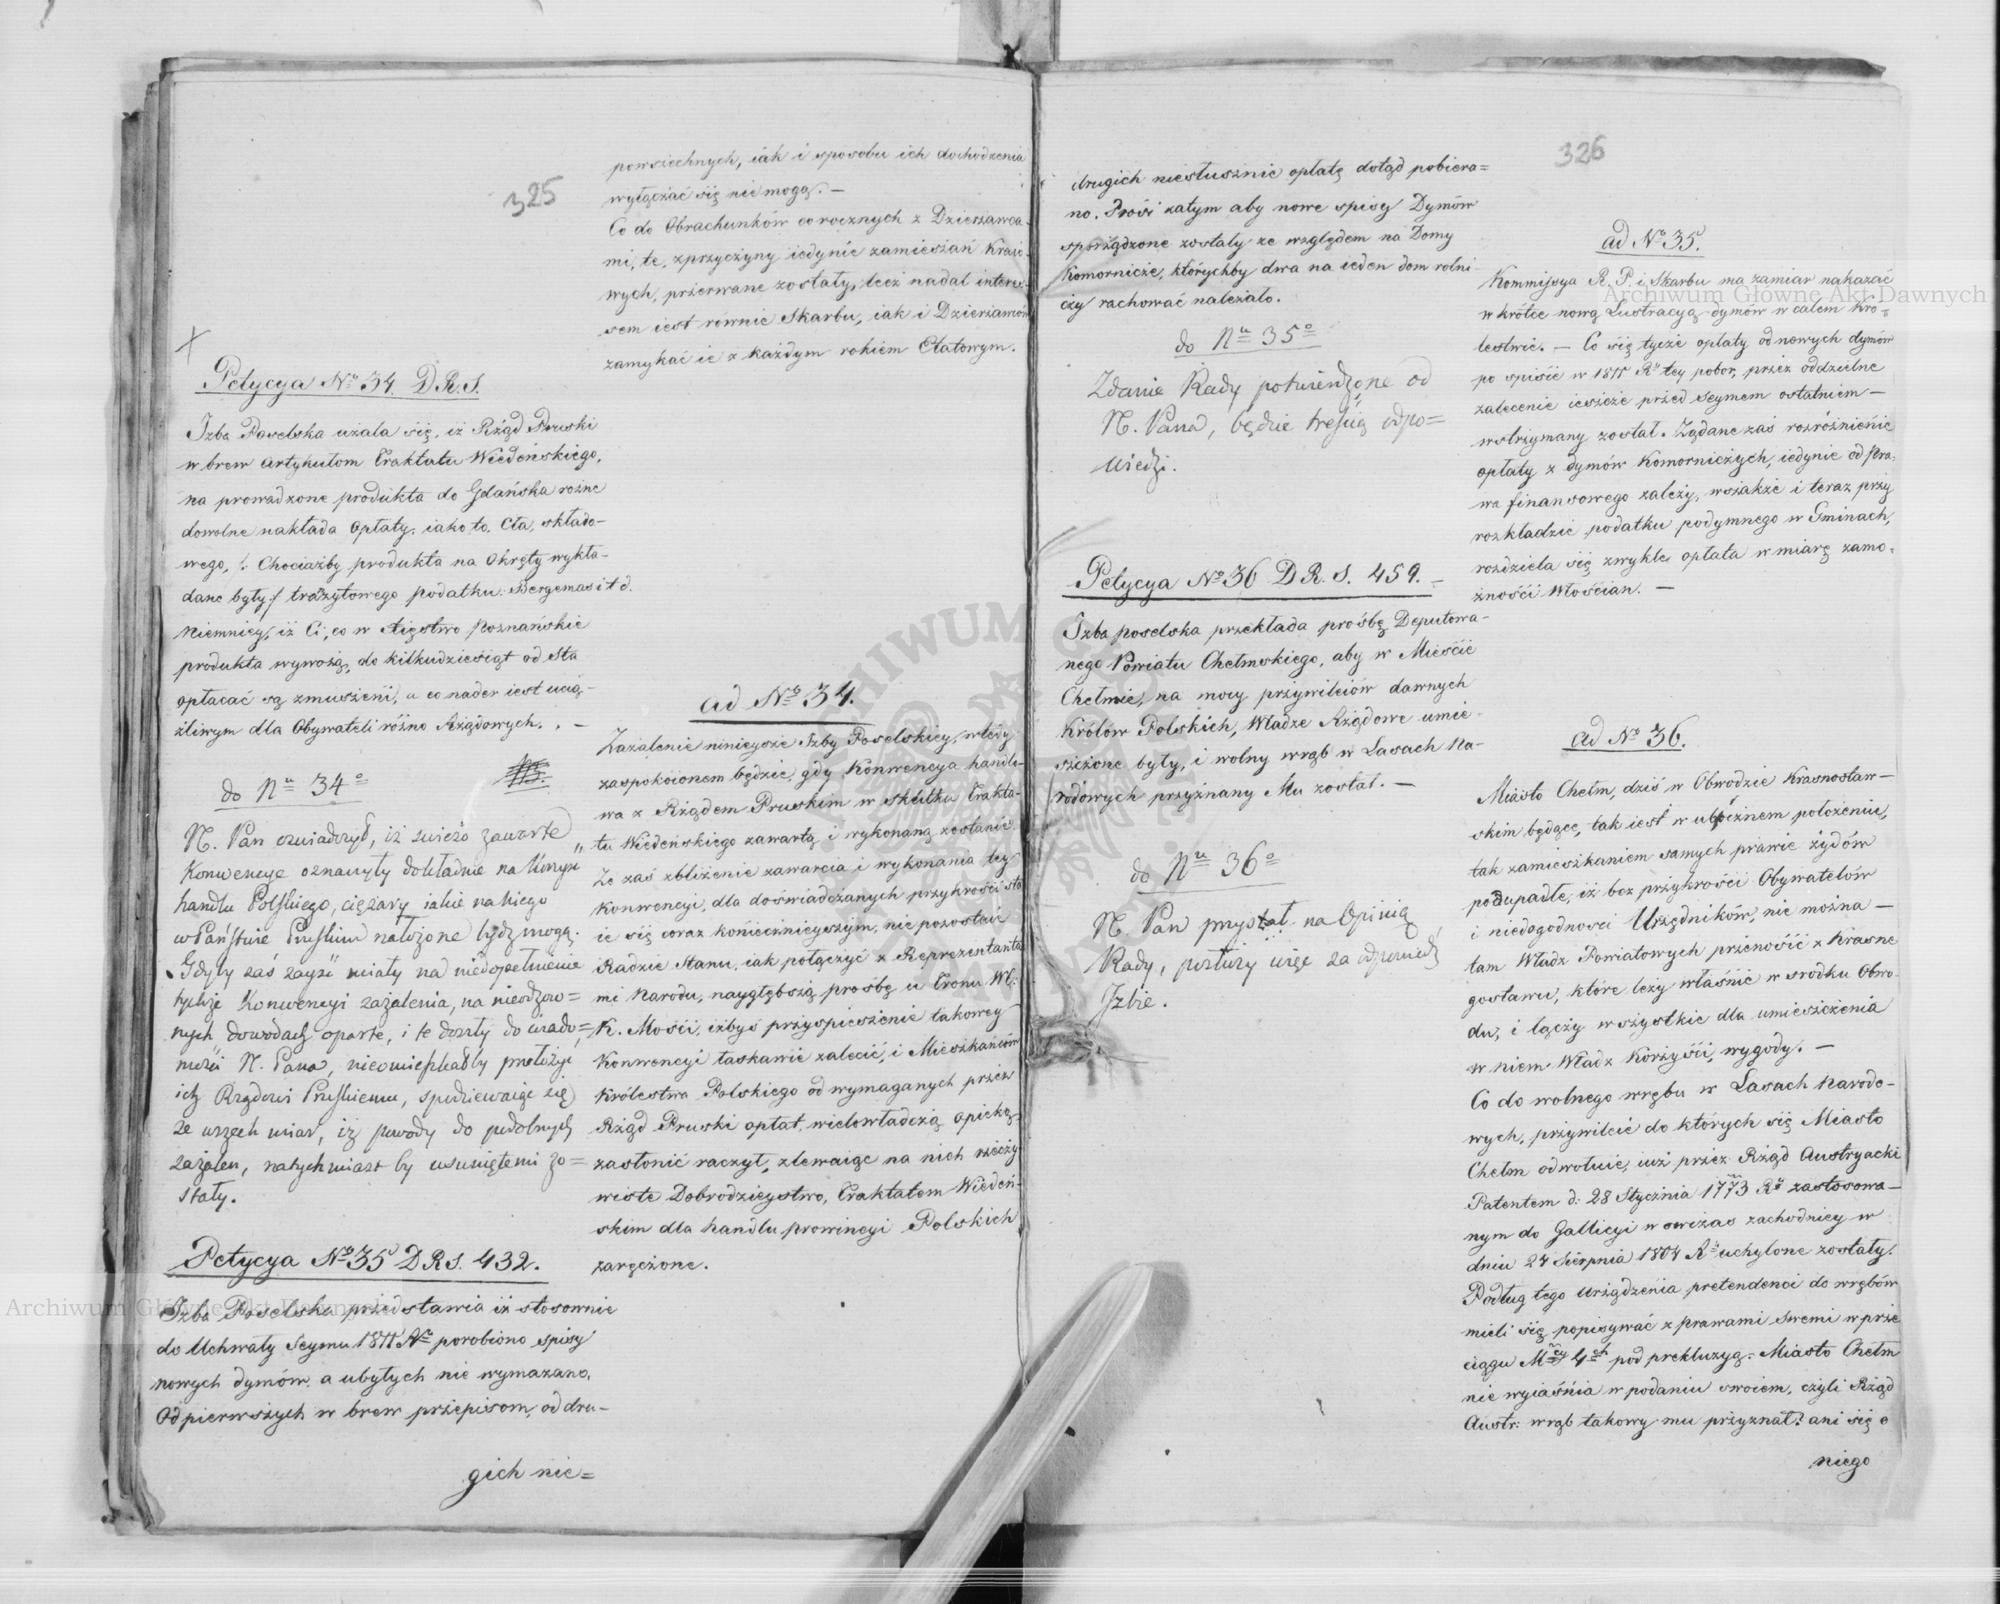 325
Petycya Nº 34. D.R.S.
Izba Poselska użala się, iż Rząd Pruski
w brew Artykułom Traktatu Wiedeńskiego,
na prowadzone produkta do Gdańska rożne
dowolne nakłada Opłaty, iako to, Cła, składo-
wego, /: Chociażby produkta na Okręty wykła-
dane były :/ tranzytowego podatku. Bergemas i t d.
Niemniey, iż Ci, co w Xięstwo Poznańskie
produkta wywożą, do kilkudziesiąt od Sta
opłacać są zmuszeni, a co nader iest ucią-
żliwym dla Obywateli różno Rządowych. . —
do Nu 34º
N. Pan oświadczył, iż świéżo zawarte
Konwencye oznaczyły dokładnie na korzyść
handlu Polskiego, ciężary iakie na niego
w Państwie Pruskim nałożone bydź mogą.
Gdyby zaś zayść miały na niedopełnienie
tychże Konwencyi zażalenia, na nieodzow=
nych dowodach oparte, i te doszły do wiado=
mości N. Pana, nieomieszkałby przełożyć
ich Rządowi Pruskiemu, spodziewaiąc się
ze wszech miar, iż powody do podobnych
zażaleń, natychmiast by usuniętemi zo=
stały.
Petycya Nº 35 D R S. 432.
Izba Poselska przedstawia iż stosownie
do Uchwały Seymu 1811 Rº porobiono spisy
nowych dymów, a ubyłych nie wymazano.
Od pierwszych w brew przepisom, od dru-
gich nie=
powszechnych, iak i sposobu ich dochodzenia
wyłączać się nie mogą. —
Co do Obrachunków corocznych z Dzierżawca-
mi, te, z przyczyny iedynie zamieszań Kraio-
wych, przerwane zostały, lecz nadal intere-
sem iest równie Skarbu, iak i Dzierżawców
zamykać ie z każdym rokiem Etatowym.
ad Nº 34.
Zażalenie ninieysze Izby Poselskiey, wtedy
zaspokoionem będzie, gdy Konwencya handlo-
wa z Rządem Pruskim w skutku Trakta-
tu Wiedeńskiego zawartą i wykonaną zostanie.
Że zaś zbliżenie zawarcia i wykonania tey
Konwencyi, dla doświadczanych przykrości sta
ie się coraz koniecznieyszym, nie pozostaie
Radzie Stanu, iak połączyć z Reprezentanta
mi Narodu, naygłębszą prośbę u Tronu W.
K. Mości, iżbyś przyspieszenie takowey
Konwencyi łaskawie zalecić, i Mieszkańców
Królestwa Polskiego od wymaganych przez
Rząd Pruski opłat, wielowładczą opieką
zasłonić raczył, zlewaiąc na nich rzeczy-
wiste Dobrodzieystwo, Traktatem Wiedeń-
skim dla handlu prowincyi Polskich
zaręczone.
326
drugich niesłusznie opłatę dotąd pobiera=
no. Prosi zatym aby nowe spisy Dymów
sporządzone zostały ze względem na Domy
Komornicze, którychby dwa na ieden dom rolni-
czy rachować należało.
do Nu 35º
Zdanie Rady potwierdzone od
N. Pana, będzie treścią odpo=
wiedzi.
Petycya Nº 36 D R. S. 459. —
Izba poselska przekłada prośbę Deputowa-
nego Powiatu Chełmskiego, aby w Mieście
Chełmie, na mocy przywileiów dawnych
Królów Polskich, Władze Rządowe umie-
szczone były, i wolny wrąb w Lasach Na-
rodowych przyznany Mu został. —
do Nu 36º
N. Pan przystał na Opinią
Rady, posłuży więc za odpowiedź
Izbie.
ad Nº 35.
Kommissya R. P. i Skarbu ma zamiar nakazać
w krótce nową Lustracyą dymów w całem Kró-
lestwie. — Co się tycze opłaty od nowych dymów
po spisie w 1811 Rº tey pobor, przez oddzielne
zalecenie ieszcze przed Seymem ostatniem —
wstrzymany został. Żądane zaś rozróżnienie
opłaty z dymów Komorniczych, iedynie od Pra-
wa finansowego zależy, wszakże i teraz przy
rozkładzie podatku podymnego w Gminach,
rozdziela się zwykle opłata w miarę zamo-
żności Włościan. —
ad Nº 36.
Miasto Chełm, dziś w Obwodzie Krasnostaw-
skim będące, tak iest w ubocznem położeniu,
tak zamieszkaniem samych prawie żydów
podupadłe, iż bez przykrości Obywatelów
i niedogodności Urzędników, nie można —
tam Władz Powiatowych przenosić z Krasne
gostawu, które leży właśnie w srodku Obwo-
du, i łączy wszystkie dla umieszczenia
w niem Władz Korzyści, wygody. —
Co do wolnego wrębu w Lasach Narodo-
wych, przywileie do których się Miasto
Chełm odwołuie, iuż przez Rząd Austryacki
Patentem d: 28 Stycznia 1773 Rº zastosowa-
nym do Gallicyi w owczas zachodniey w
dniu 24 Sierpnia 1804 Rº uchylone zostały.
Podług tego urządzenia pretendenci do wrębów
mieli się popisywać z prawami swemi w prze
ciągu Mcy 4ch pod prekluzyą. Miasto Chełm
nie wyiaśnia w podaniu swoiem, czyli Rząd
Austr: wrąb takowy mu przyznał? ani się o
niego
Archiwum Główne Akt Dawnych
Archiwum Główne Akt Dawnych